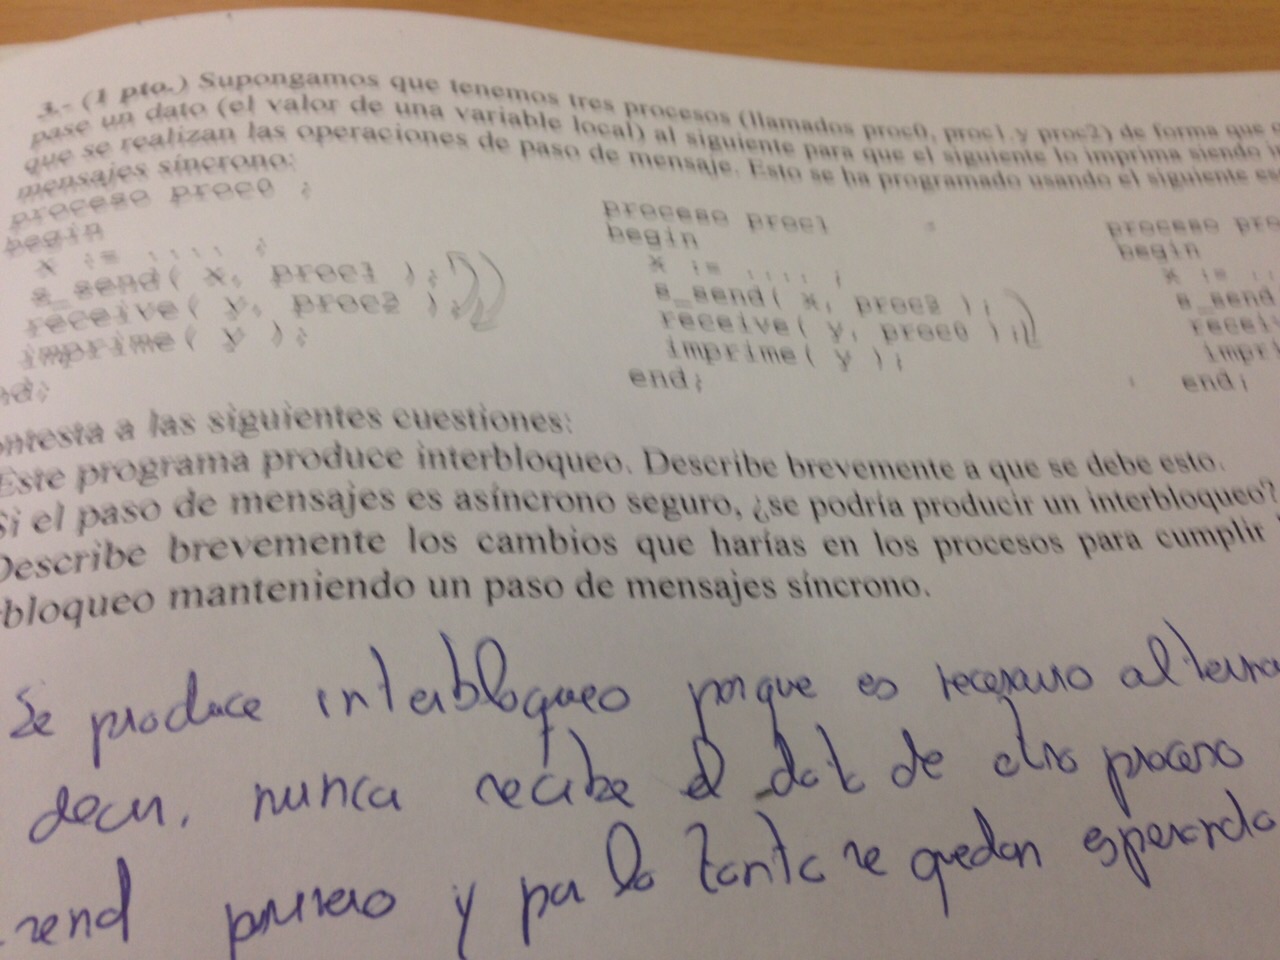 3.- (1 pto.) Supongamos que tenemos tres procesos (llamados proc0, proc1 y proc2) de forma que
pase un dato (el valor de una variable local) al siguiente para que el siguiente lo imprima siendo
que se realizan las operaciones de paso de mensaje. Esto se ha programado usando el siguiente
mensajes síncrono:
proceso proc0 ;
begin
x := .... ;
s_send( x, proc1 );
receive( y, proc2 );
imprime( y );
nd;
proceso proc1
begin
x := .... ;
s_send( x, proc2 );
receive( y, proc0 );
imprime( y );
end;
proceso pro
begin
x := ..
s_send
recei
impri
end;
ontesta a las siguientes cuestiones:
Este programa produce interbloqueo. Describe brevemente a que se debe esto.
Si el paso de mensajes es asíncrono seguro, ¿se podría producir un interbloqueo?
Describe brevemente los cambios que harías en los procesos para cumplir
rbloqueo manteniendo un paso de mensajes síncrono.
Se produce interbloqueo porque es necesario alterna
decir, nunca recibe el dato de otro proceso
send primero y por lo tanto se quedan esperando